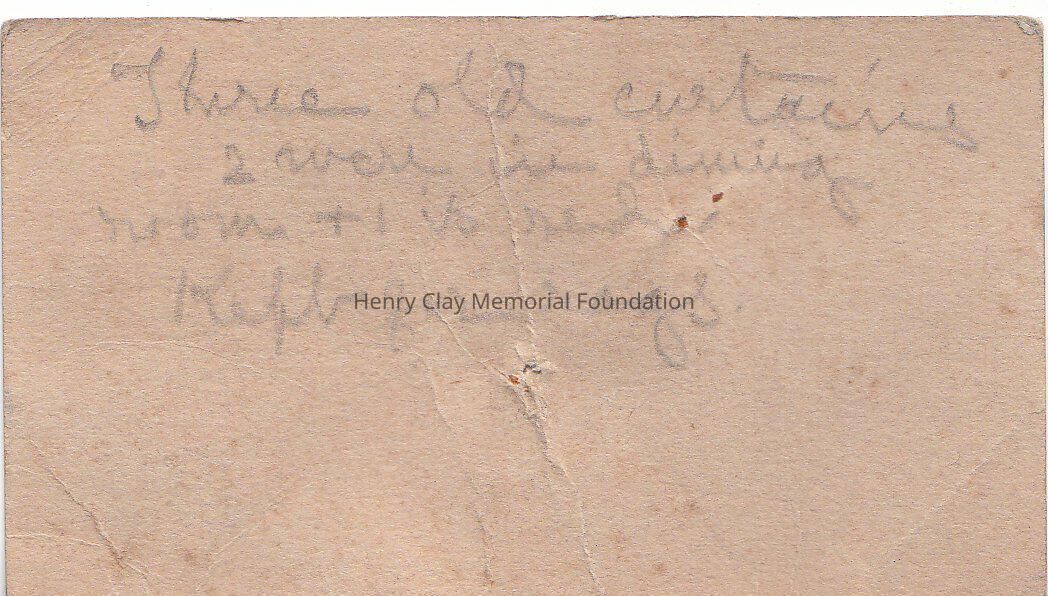 Three old curtains
2 were in dining
room + 1 is
Kept
Henry Clay Memorial Foundation